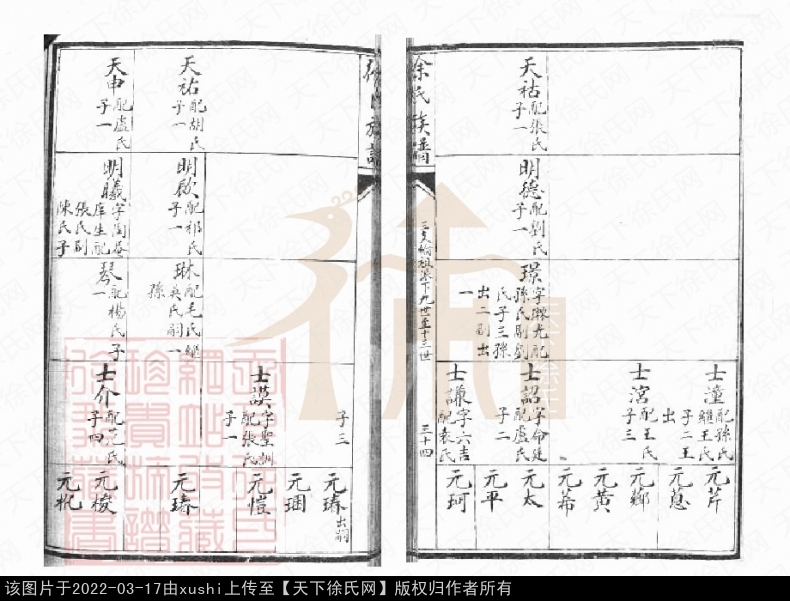 徐氏族譜
天祜配張氏
子一
明德配劉氏
子一
璟字
配
孫氏副劉
氏子三孫
出二副出
一
士潼配孫氏
繼王氏
子二王
出
配王氏
子三
士詔字命廷
配盧氏
子二
士謙字六吉
配袁氏
元芹
元蔥
元鄰
元黃
元希
元太
元平
元珂
下九世至十三世
三十四
徐氏族譜
天祐配胡氏
子一
天申配盧氏
子一
明啟配祁氏
子一
明曦字陶菴
庠生配
張氏副
陳氏子
琳配毛氏繼
吳氏嗣一
孫
琴配楊氏子
一
子三
士謨字聖訓
配張氏
子一
士介配
氏
子四
元瑃出嗣
元琱
元愷
元瑃
元梭
元
该图片于2022-03-17由xushi上传至【天下徐氏网】版权归作者所有
天下徐氏网